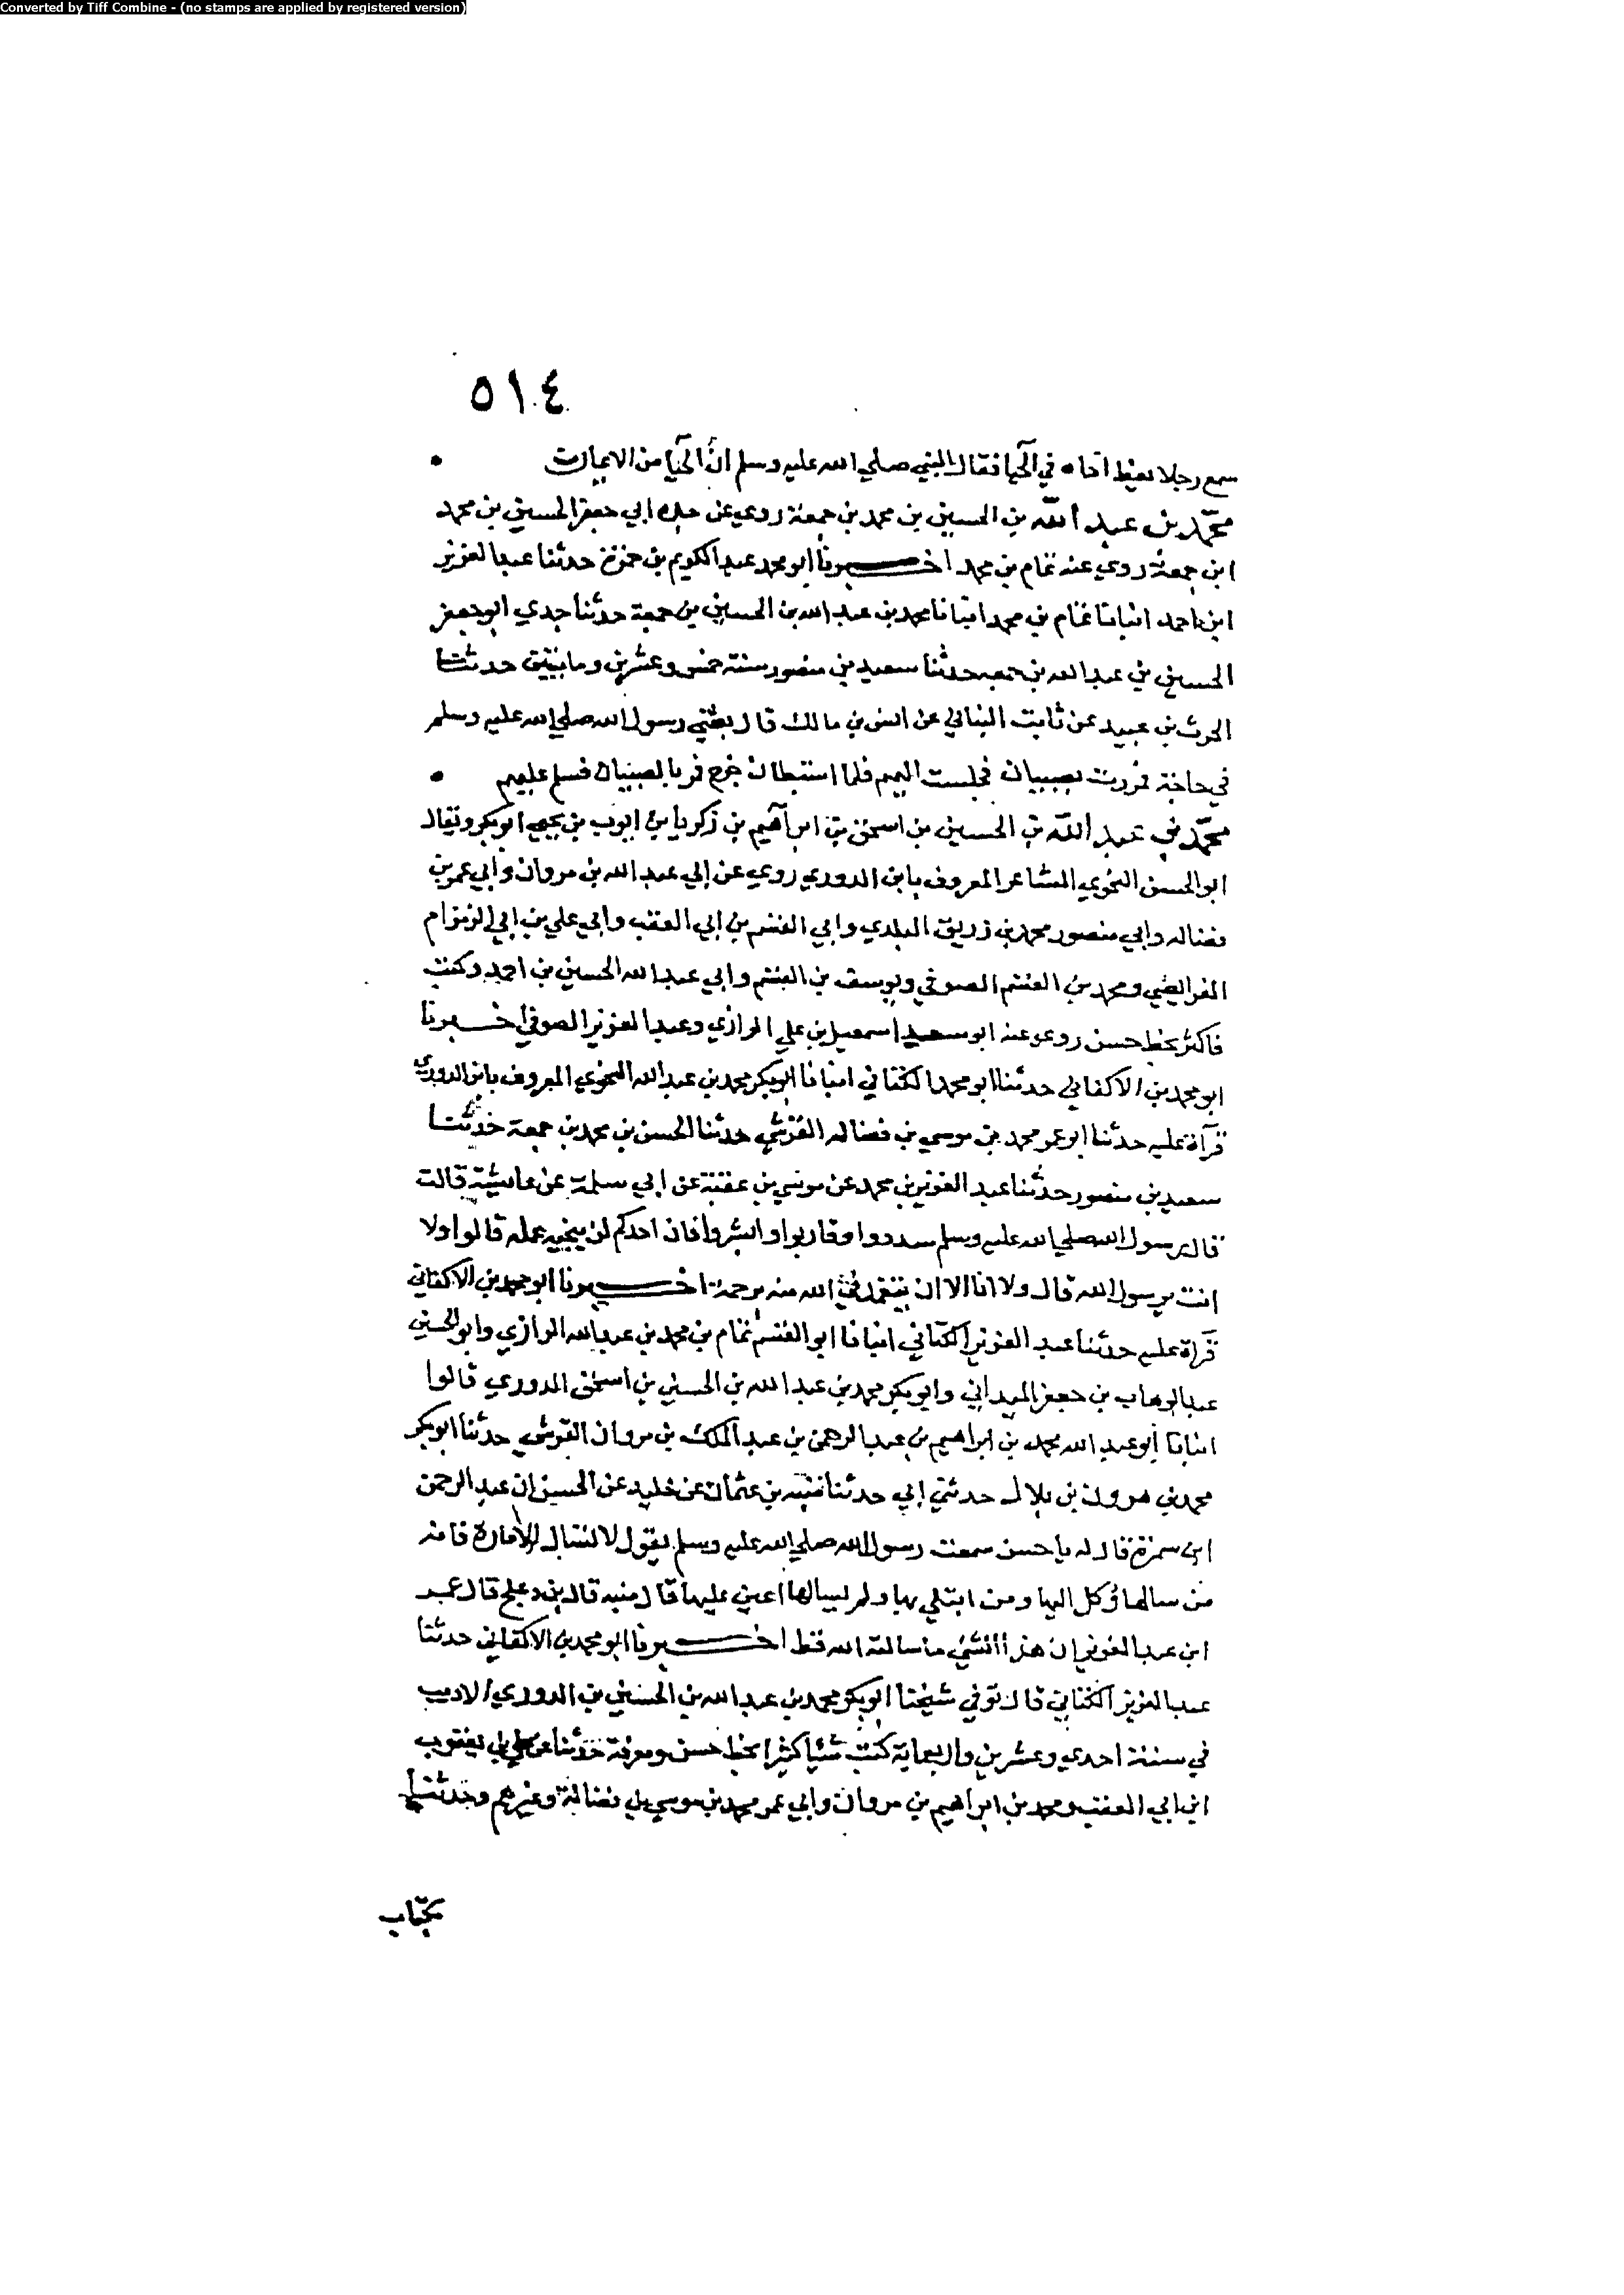 Converted by Tiff Combine - (no stamps are applied by registered version)
٥١٤
سمع رجلا يعيظ اخاه في الحيا فقال النبي صلي الله عليه وسلم ان الحيا من الايمان
محمد بن عبد الله بن الحسين بن محمد بن جمعة روي عن جده ابي جعفر الحسين بن محمد
ابن جمعة روي عنه تمام بن محمد اخبرنا ابو محمد عبد الكريم بن حمزة حدثنا عبد العزيز
ابن احمد انبانا تمام بن محمد انبانا محمد بن عبد الله بن الحسين بن جمعة حدثنا جدي ابو جعفر
الحسين بن عبد الله بن جمعه حدثنا سعيد بن منصور سنة خمس وعشرين ومايتين حدثنا
الحرث بن عبيد عن ثابت البناني عن انس بن مالك قال بعثني رسول الله صلي الله عليه وسلم
في حاجة فمررت بصبيان فجلست اليهم فلما استبطان خرج فمر بالصبيان فسلم عليهم
محمد بن عبد الله بن الحسين بن اسحق بن ابراهيم بن زكريا بن ايوب بن يحيي ابو بكر ويقال
ابو الحسن النحوي الشاعر المعروف بابن الدوري روي عن ابي عبد الله بن مروان وابي عمر بن
فضاله وابي منصور محمد بن زريق البلدي وابي القسم بن ابي العقب وابي علي بن ابي الزمزام
الفرايضي ومحمد بن القسم الصوفي ويوسف بن القسم وابي عبد الله الحسين بن احمد وكتب
فاكثر بخط حسن روى عنه ابو سعيد اسمعيل بن علي الرازي وعبد العزيز الصوفي اخبرنا
ابو محمد بن الاكفاني حدثنا ابو محمد الكتاني انبانا ابو بكر محمد بن عبد الله النحوي المعروف بابن الدوري
قرآة عليه حدثنا ابو عمر محمد بن موسي بن فضاله القرشي حدثنا الحسن بن محمد بن جمعة حدثنا
سعيد بن منصور حدثنا عبد العزيز بن محمد عن موسي بن عقبة عن ابي سلمة عن عايشة قالت
قال رسول الله صلي الله عليه وسلم سددوا وقاربوا وابشروا فان احدكم لن ينجيه عمله قالوا ولا
انت يرسول الله قال ولا انا الا ان يتغمدني الله منه برحمة اخبرنا ابو محمد بن الاكفاني
قرآة عليه حدثنا عبد العزيز الكتاني انبانا ابو القسم تمام بن محمد بن عبد الله الرازي وابو الحسين
عبد الوهاب بن جعفر الميداني وابو بكر محمد بن عبد الله بن الحسين بن اسحق الدوري قالوا
انبانا أبو عبد الله محمد بن ابراهيم بن عبد الرحمن بن عبد الملك بن مروان القرشي حدثنا ابو بكر
محمد بن هرون بن بلال حدثني ابي حدثنا منبه بن عثمان عن خليد عن الحسن ان عبد الرحمن
ابن سمرة قال له يا حسن سمعت رسول الله صلي الله عليه وسلم يقول لا تسال الامارة فانه
من سالها وكل اليها ومن ابتلي بها ولم يسالها اعين عليها قال منبه قال بن دعلج قال عمر
ابن عبد العزيز ان هذا الشي ما سالته الله قط اخبرنا ابو محمد بن الاكفاني حدثنا
عبد العزيز الكتاني قال توفي شيخنا ابو بكر محمد بن عبد الله بن الحسين بن الدوري الاديب
في سنة احدي وعشرين واربعماية كتب شيا كثيرا بخط حسن ومعرفة حدثنا عن علي بن يعقوب
ابن ابي العقب ومحمد بن ابراهيم بن مروان وابي عمر محمد بن موسي بن فضالة وغيرهم وحدثنا
بكتاب